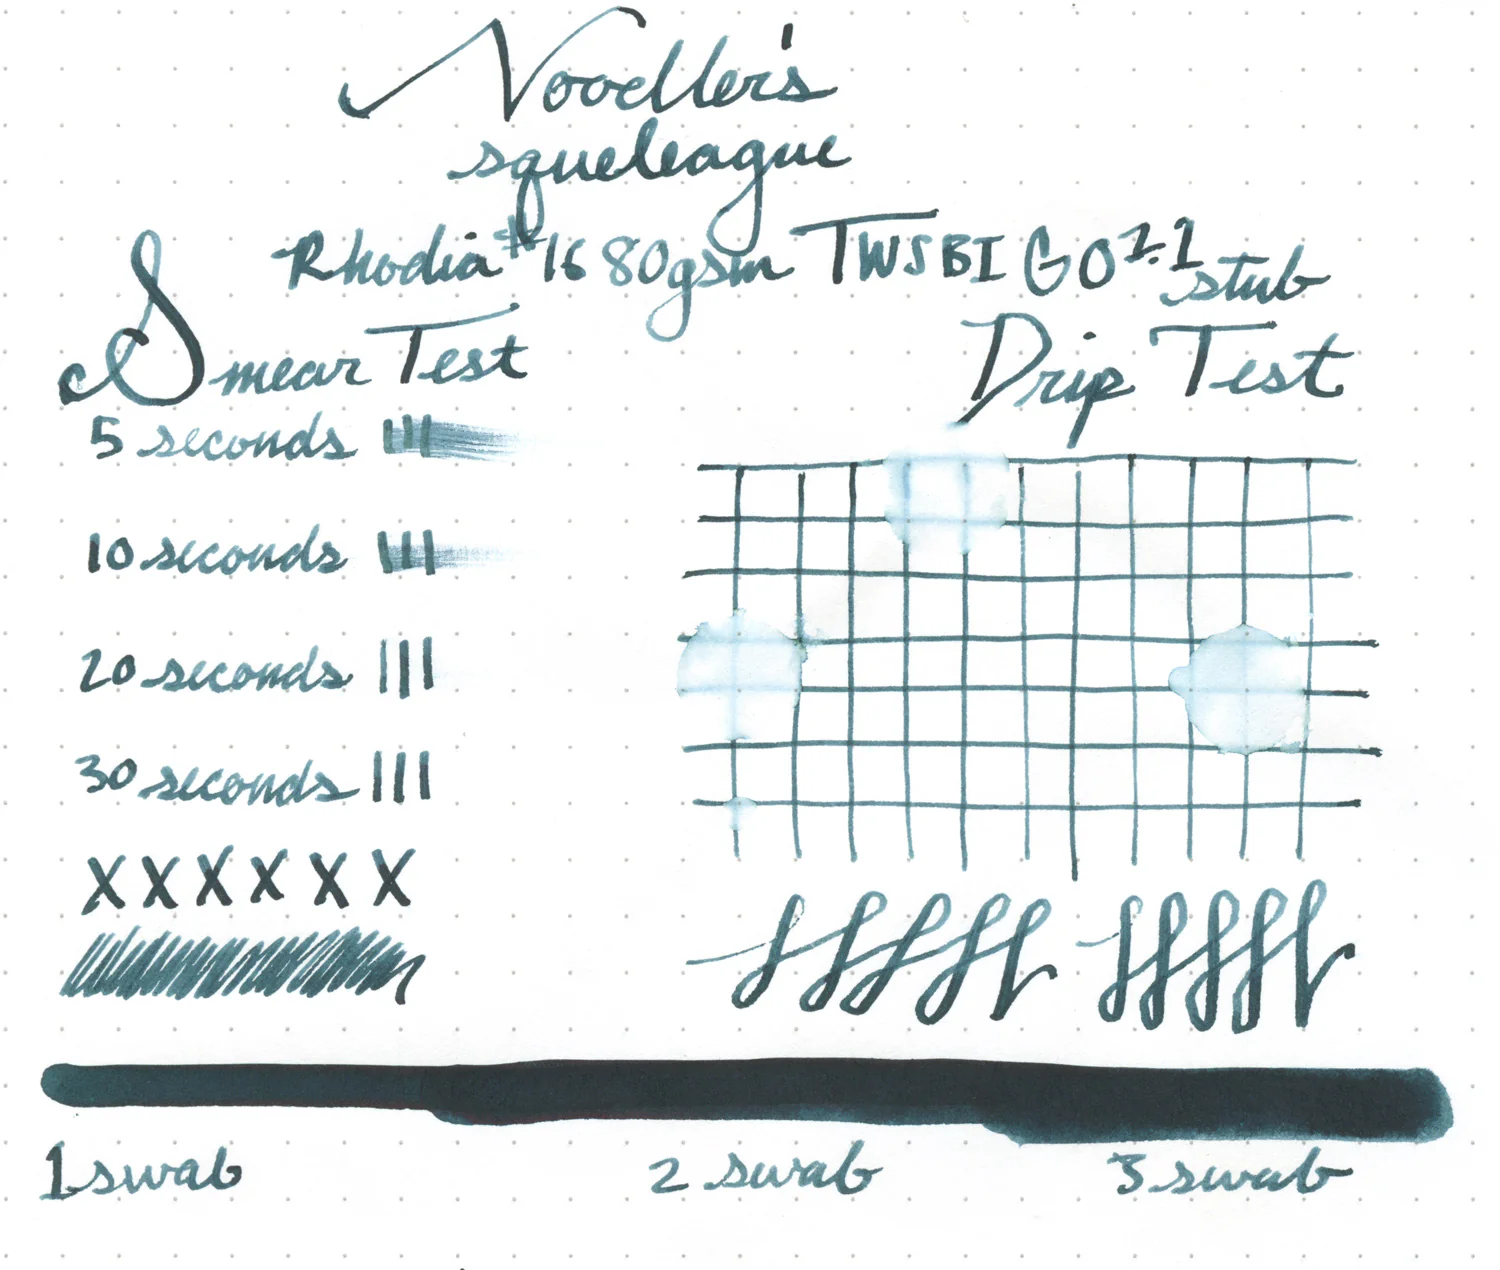 Noodler's
squeteague
Rhodia #16 80gsm TWSBI GO 1.1 stub
Smear Test
Drip Test
5 seconds
10 seconds
20 seconds
30 seconds
X X X X X X
1 swab
2 swab
3 swab